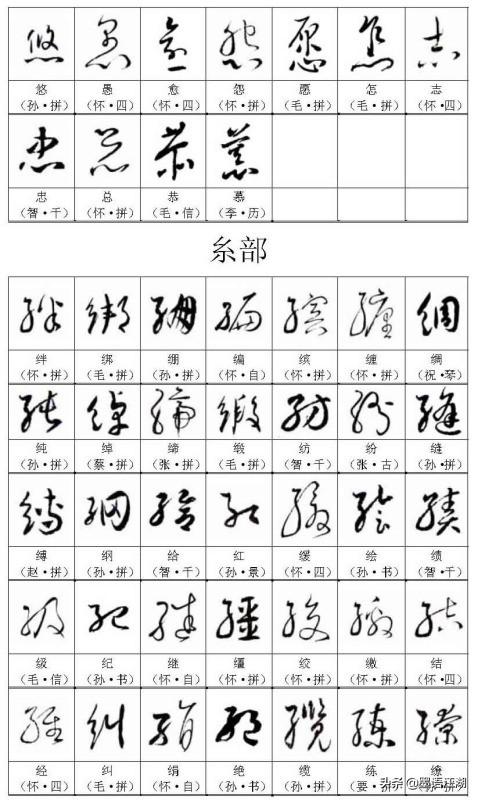 悠 愚 愈 怨 愿 怎 志
（孙·拼） （怀·四） （怀·四） （怀·拼） （毛·拼） （毛·拼） （怀·四）
忠 总 恭 慕
（智·千） （怀·拼） （毛·信） （李·历）
糸部
绊 绑 绷 编 缤 缠 绸
（怀·拼） （毛·拼） （孙·拼） （怀·自） （怀·拼） （怀·拼） （祝·琴）
纯 绰 缔 缎 纺 纷 缝
（孙·拼） （蔡·拼） （张·拼） （毛·拼） （智·千） （张·古） （孙·拼）
缚 纲 给 红 缓 绘 绩
（赵·拼） （孙·拼） （智·千） （孙·景） （怀·四） （孙·书） （智·千）
级 纪 继 缰 绞 缴 结
（毛·信） （孙·书） （怀·自） （怀·拼） （怀·拼） （怀·拼） （怀·四）
经 纠 绢 绝 缆 练 缭
（怀·四） （毛·拼） （怀·自） （孙·书） （孙·拼）
头条 @墨语江湖